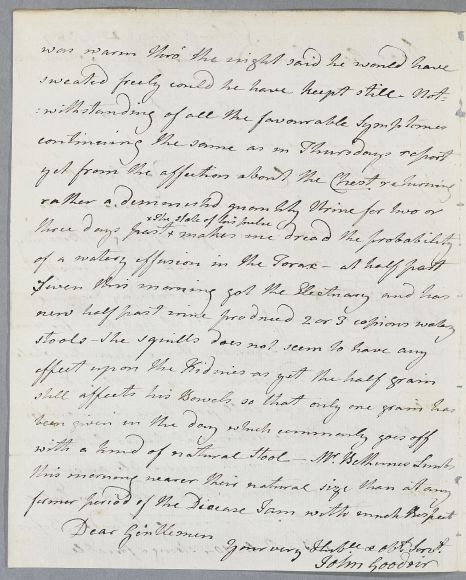 was warm thro' the night said he would have
sweated freely could he have keept still - Not:
:withstanding of all the favourable Symptomes
continuing the same as in Thursdays report
yet from the affection about the Chest returning
rather a deminished quantity Urine for two or
+ the state of his pulse
three days past + makes me dread the probability
of a watery effusion in the Torax - at half past
Seven this morning got the Electuary and has
now half past nine produced 2 or 3 copious watery
stools - the squills does not seem to have any
effect upon the Kidnies as yet the half grain
still affects his Bowels so that only one grain has
been given in the day which commonly goes off
with a kind of natural Stool - Mr. Bethunes Limbs
this morning nearer their natural size than at any
former period of the Disease I am with much Respect
Dear Gentlemen
Your very Huble & obt. Servt.
John Goodsir